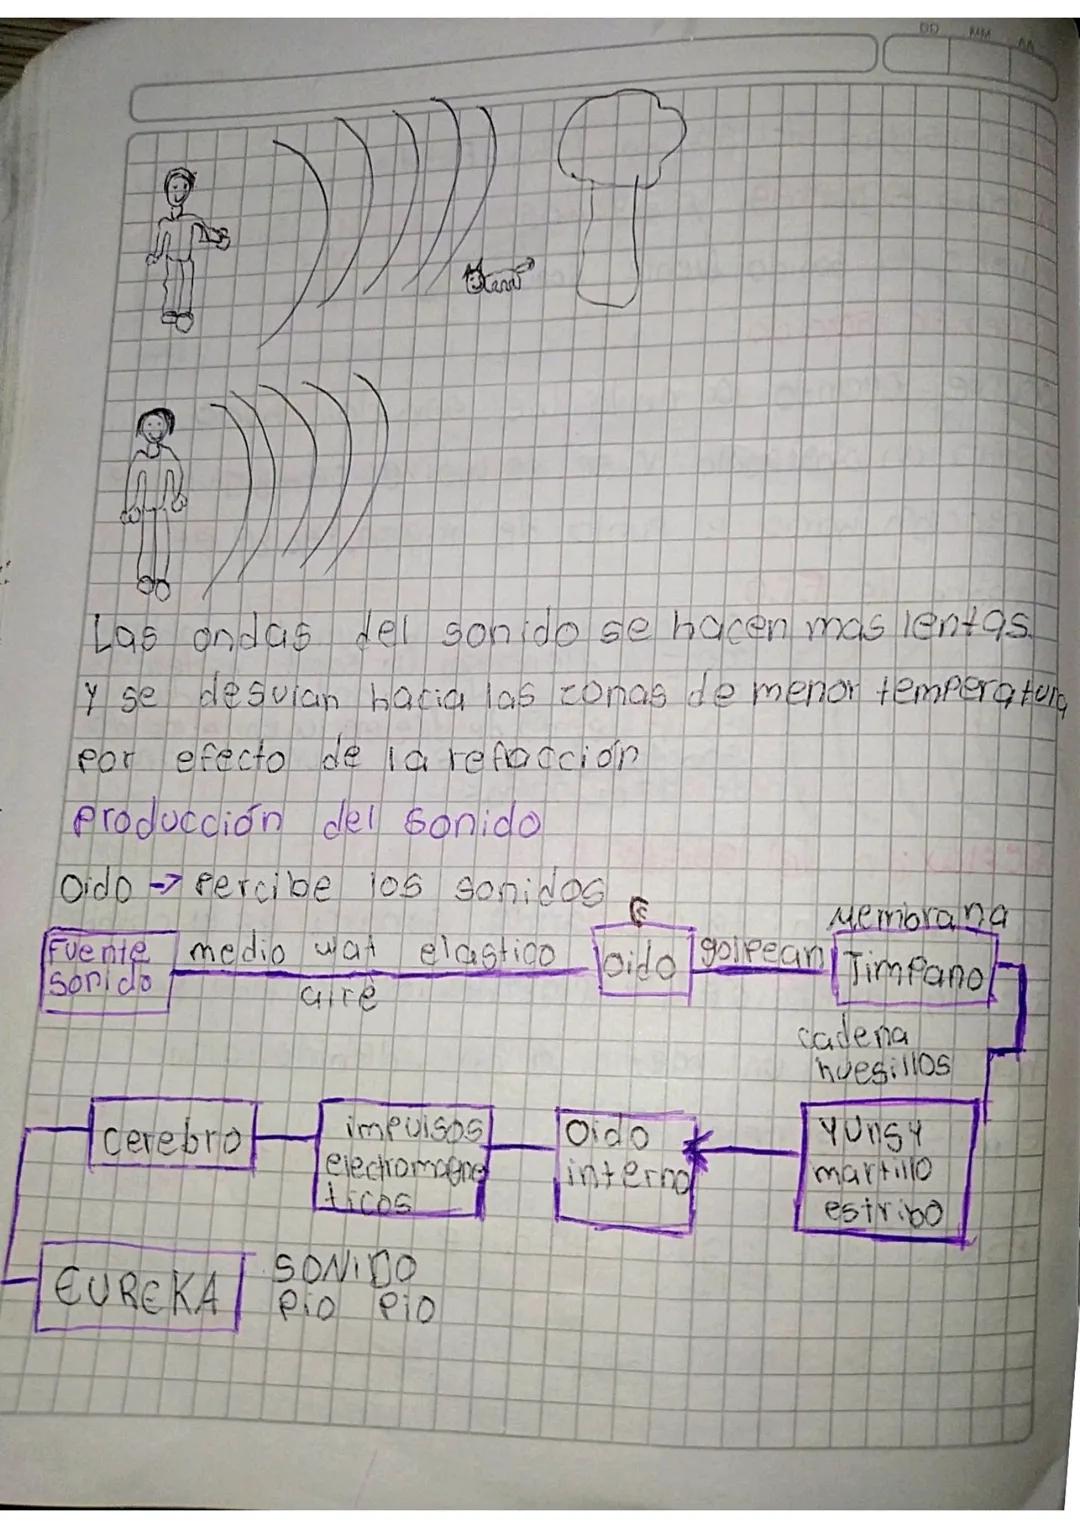 DD MM AA
Las ondas del sonido se hacen mas lentas.
y se desvian hacia las zonas de menor temperatura
por efecto de la refracción
Producción del sonido
Oido → Percibe los sonidos
Membrana
Fuente sonido
medio elastico
aire
Oido
golpean
Timpano
cadena
huesillos
yunsy
martillo
estribo
Oido
interno
impulsos
electromagne
ticos
cerebro
EUREKA
SONIDO
Pio Pio